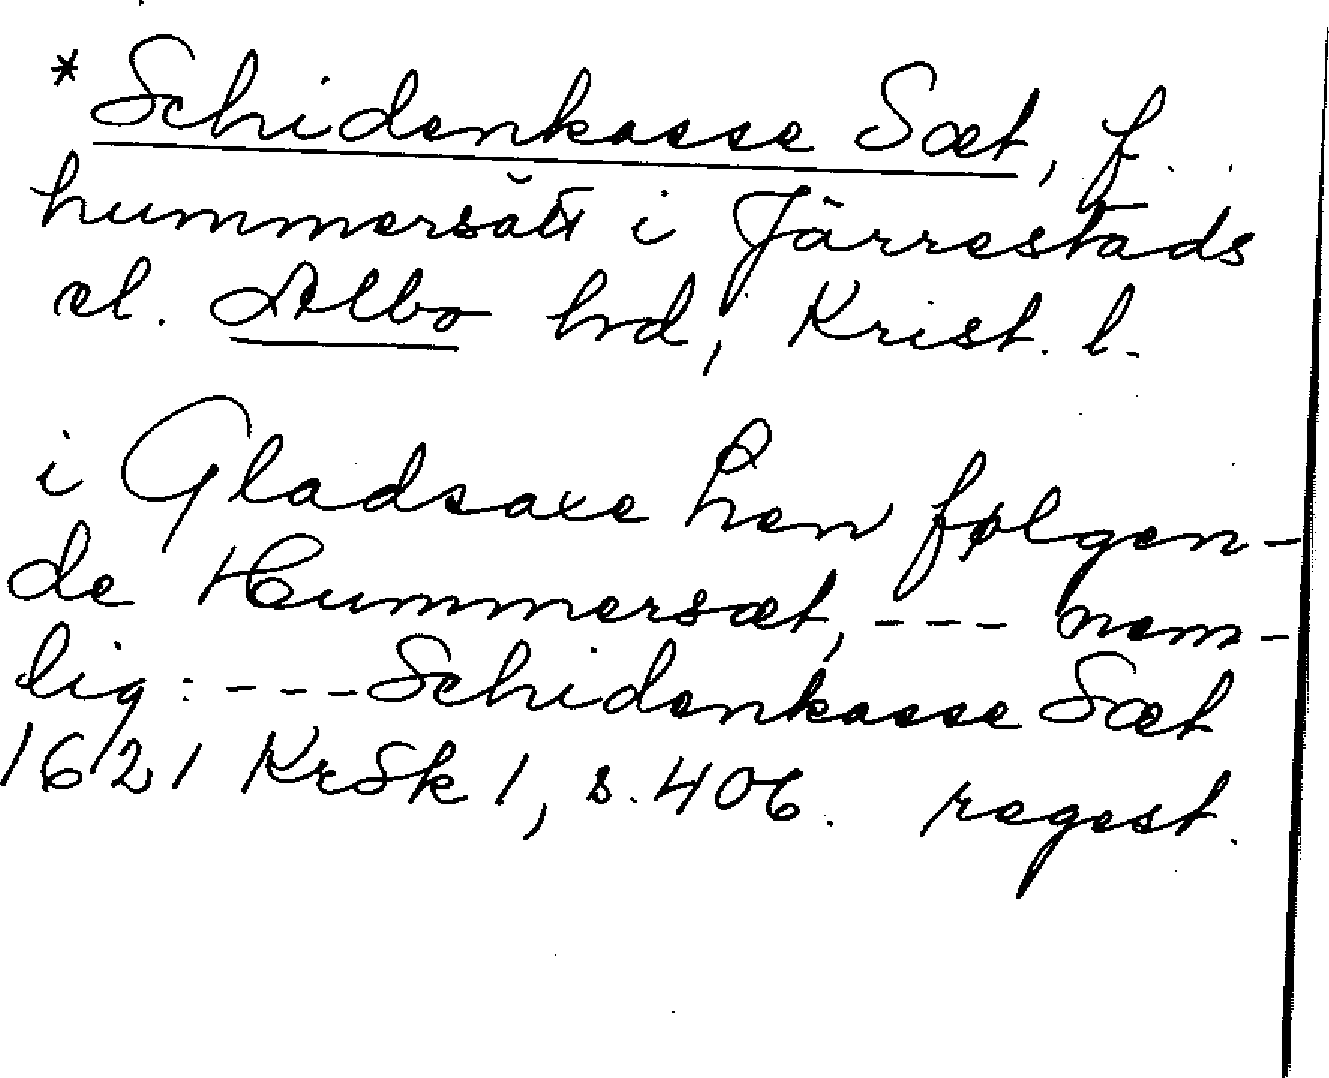 * Schidenkasse Sæt, f.
hummersätt i Järrestads
el. Albo hrd, Krist. l.
i Gladsaxe Len følgen-
de Hummersæt, --- nem-
lig: --- Schidenkasse Sæt
1621 KrSk 1, s. 406. regest.